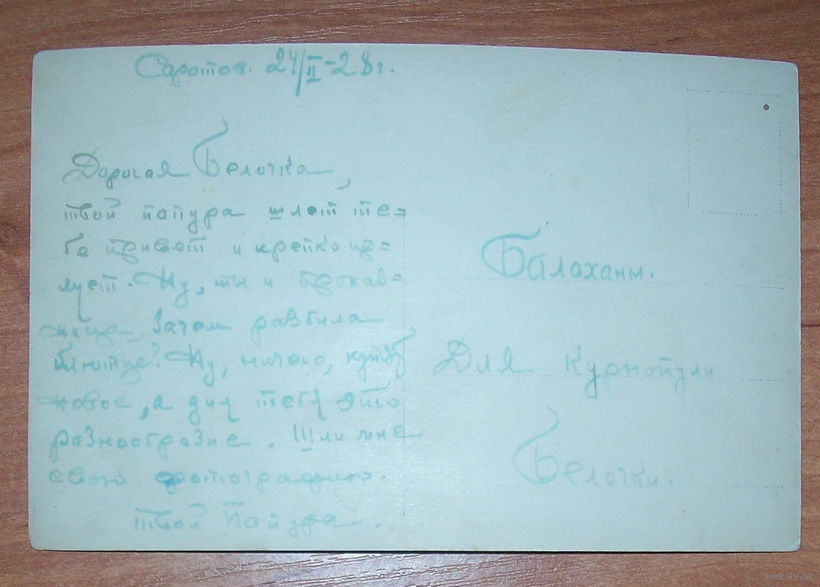 Саратов. 24/II-28г.
Дорогая Белочка,
твой папура шлет те=
бе привет и крепко це=
лует. Ну, ты и
зачем разбила
блютце? Ну, ничего,
новое, а для тебя это
разнообразие. Шли мне
свою фотографию.
твой Папура.
Балаханы.
Для Курнопули
Белочки.